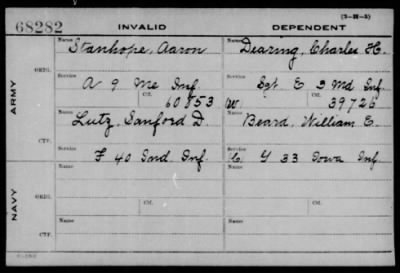 (3-2M-5)
68282 INVALID DEPENDENT
Name Stanhope, Aaron Name Dearing, Charles H.
ARMY
ORIG.
Service A 9 Me Inf. Service Sgt E 3 Md Inf.
Ctf. 60853 W. Ctf. 39726
Name Lutz, Sanford D. Name Beard, William E.
CTF.
Service F 40 Ind Inf. Service C. G 33 Iowa Inf.
NAVY
Name Name
ORIG.
Service Ctf. Service Ctf.
Name Name
CTF.
Service Service